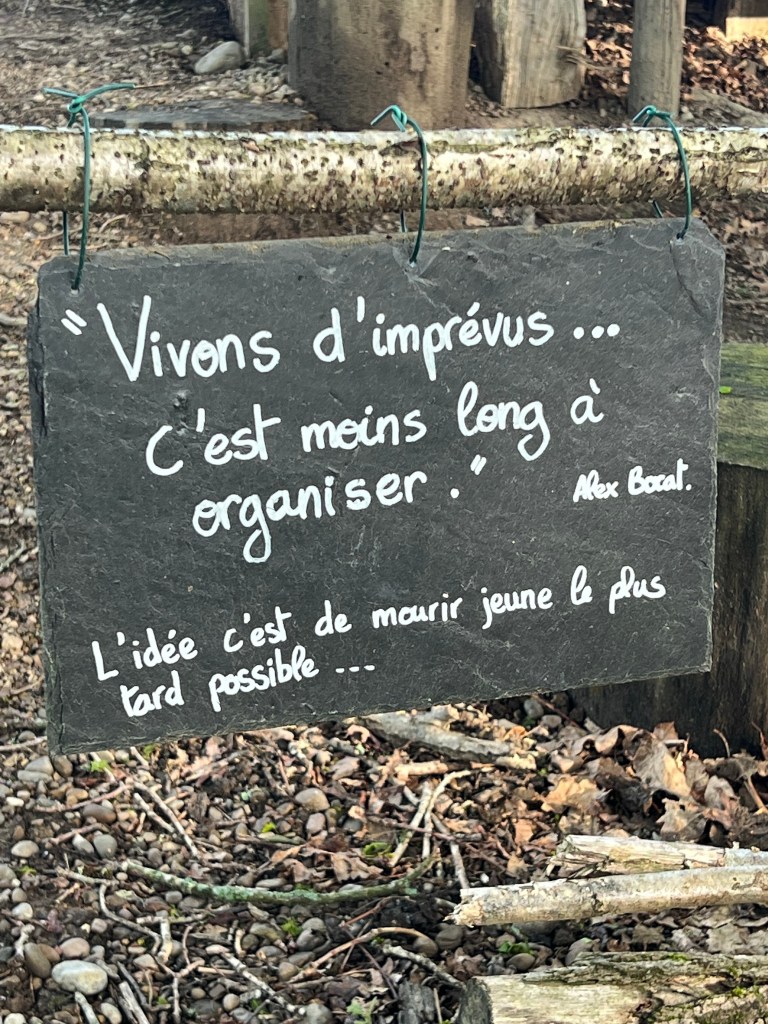 "Vivons d'imprévus...
C'est moins long à
organiser."
Alex Bocat.
L'idée c'est de mourir jeune le plus
tard possible...